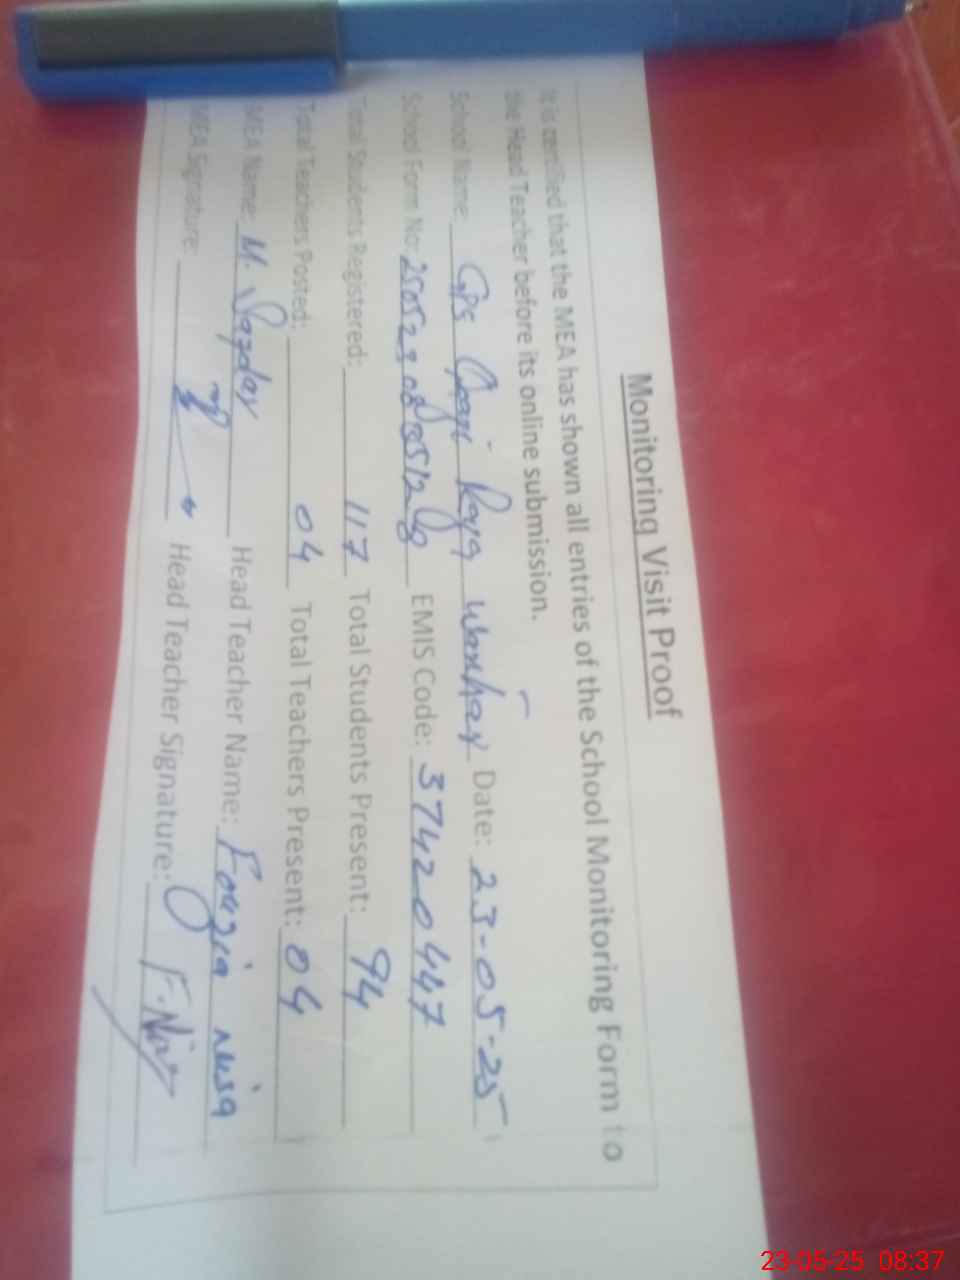 Monitoring Visit Proof
It is certified that the MEA has shown all entries of the School Monitoring Form to
the Head Teacher before its online submission.
School Name: GPS Date: 23-05-25
School Form No: EMIS Code: 37420447
Total Students Registered: 117 Total Students Present: 94
Total Teachers Posted: 04 Total Teachers Present: 04
MEA Name: M. Head Teacher Name: Fouzia nisa
MEA Signature: Head Teacher Signature:
23-05-25 08:37